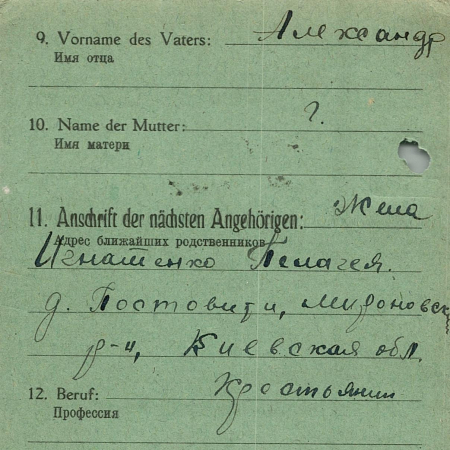 9. Vorname des Vaters: Александр
Имя отца
10. Name der Mutter: ?
Имя матери
11. Anschrift der nächsten Angehörigen: Жена
Адрес ближайших родственников
Игнатенко Пелагея.
д. Поставити, Мироновск
р-н, Киевская обл.
12. Beruf: Крестьянин
Профессия